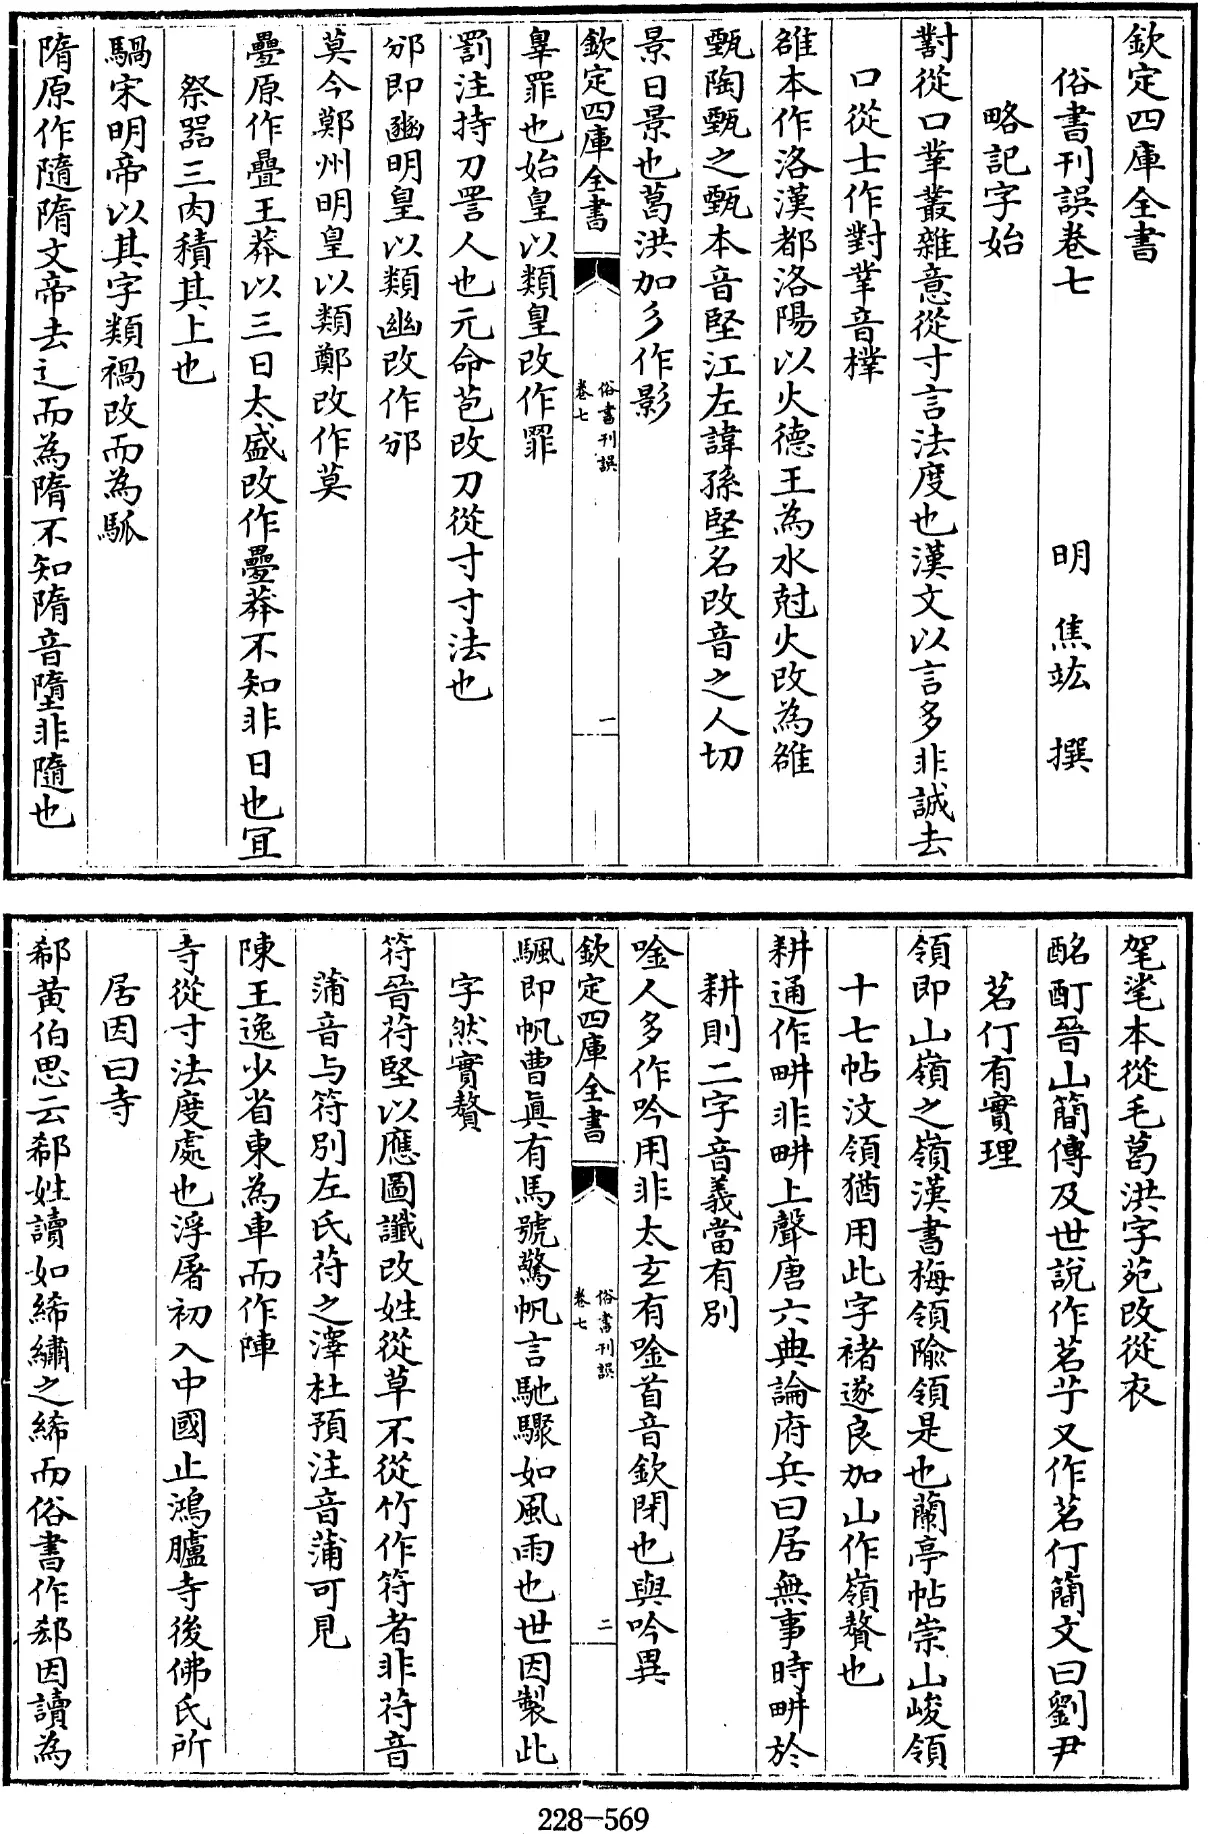 欽定四庫全書
俗書刋誤卷七
明 焦竑 撰
略記字始
對從口丵叢雜意從寸言法度也漢文以言多非誠去
口從士作對丵音檏
雒本作洛漢都洛陽以火德王為水尅火改為雒
甄陶甄之甄本音堅江左諱孫堅名改音之人切
景日景也葛洪加彡作影
欽定四庫全書
俗書刋誤
卷七
一
辠罪也始皇以類皇改作罪
罰注持刀詈人也元命苞改刀從寸寸法也
邠即豳明皇以類幽改作邠
莫今鄭州明皇以類鄭改作莫
疊原作疊王莽以三日太盛改作疊莽不知非日也宜
祭器三肉積其上也
騧宋明帝以其字類禍改而為䯄
隋原作隨隋文帝去辶而為隋不知隋音墮非隨也
毠毟本從毛葛洪字苑改從衣
酩酊晉山簡傳及世說作茗艼又作茗仃簡文曰劉尹
茗仃有實理
領即山嶺之嶺漢書梅領隃領是也蘭亭帖崇山峻領
十七帖汶領猶用此字褚遂良加山作嶺贅也
耕通作畊非畊上聲唐六典論府兵曰居無事時畊於
耕則二字音義當有別
唫人多作吟用非太玄有唫首音欽閉也與吟異
欽定四庫全書
俗書刋誤
卷七
二
颿即帆曹真有馬號驚帆言馳驟如風雨也世因製此
字然實贅
符晉苻堅以應圖讖改姓從草不從竹作符者非苻音
蒲音与符別左氏苻之澤杜預注音蒲可見
陳王逸少省東為車而作陣
寺從寸法度處也浮屠初入中國止鴻臚寺後佛氏所
居因曰寺
郗黃伯思云郗姓讀如絺繡之絺而俗書作郄因讀為
228-569